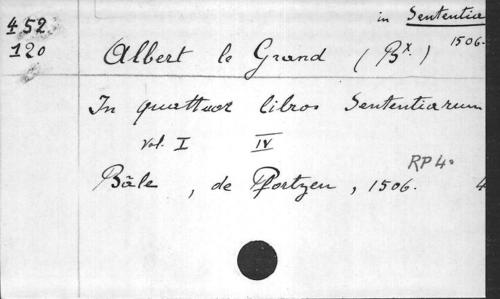 452
120
in Sententia
1506.
Albert le Grand (Bx.)
In quattuor libros Sententiarum
Vol. I IV
RP 4o
Bâle, de Pfortzen, 1506. 4